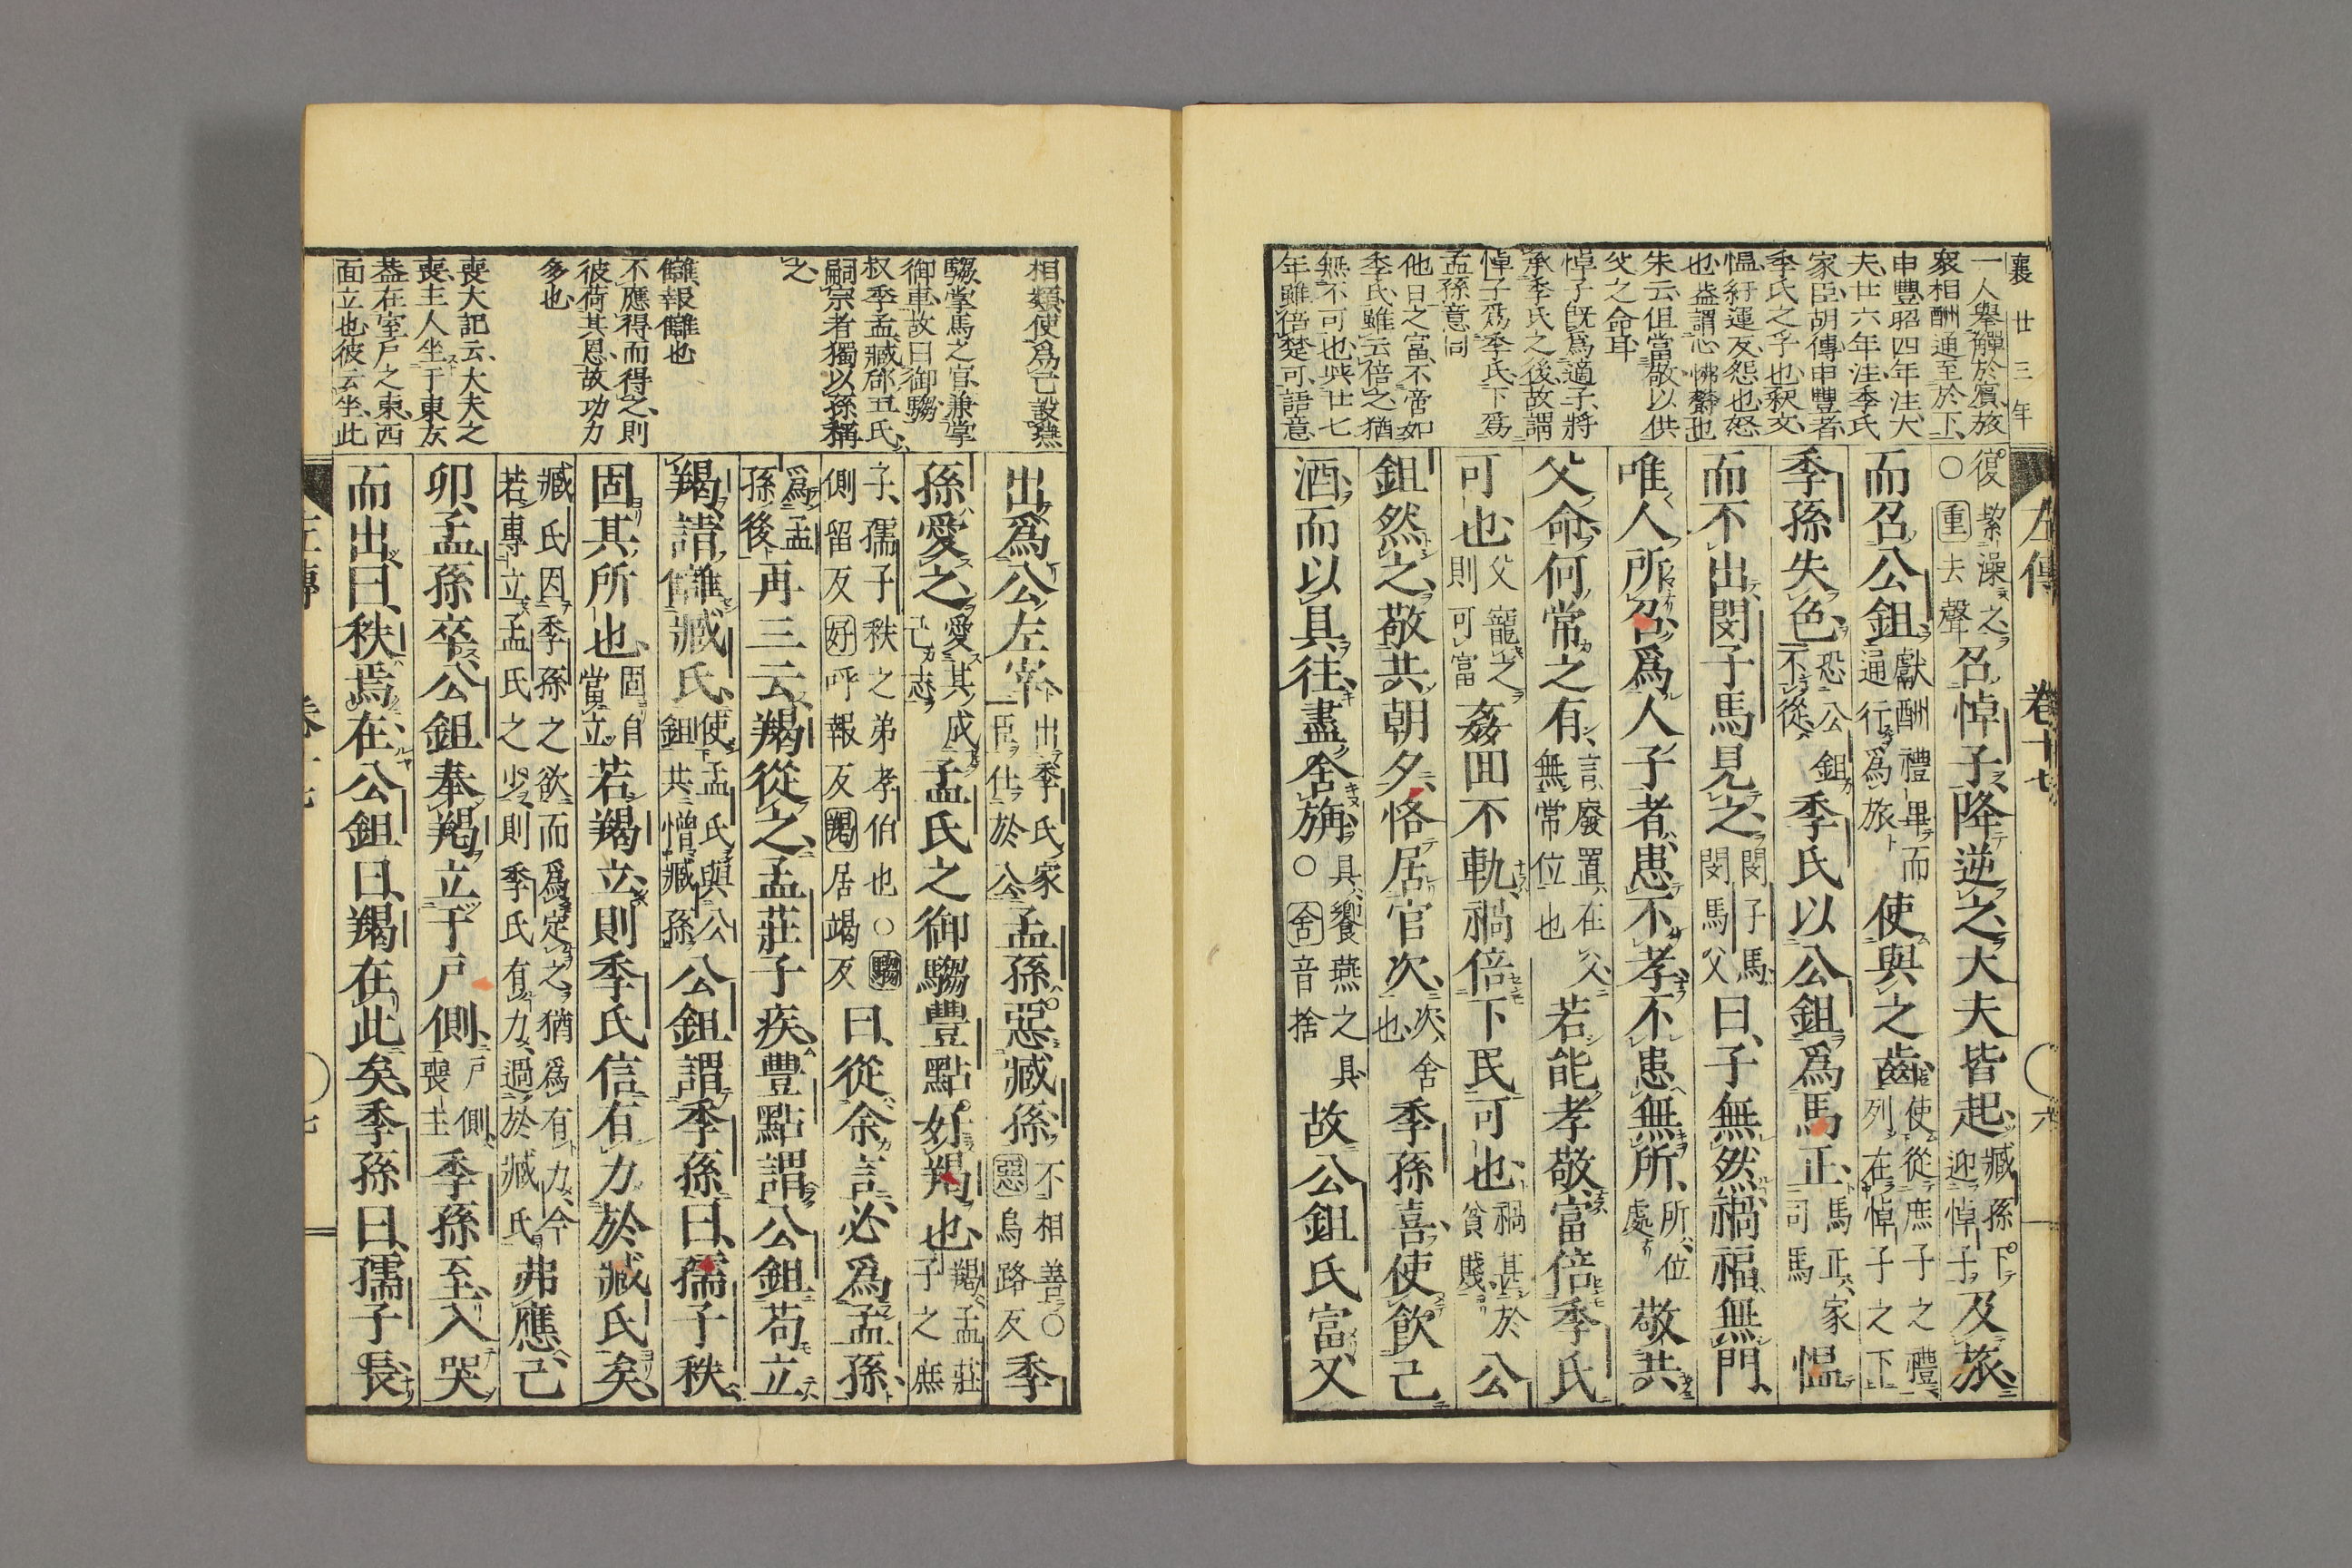 襄廿三年
一人舉觶於賓旅
衆相酬通至於下
申豐昭四年注大
夫廿六年注季氏
家臣胡傳申豐者
季氏之孚也釈文
慍紆運反怨也怒
也益謂心怫欝也
朱云但當敬以供
父之命耳
悼子既爲適子將
承季氏之後故謂
悼子爲季氏下爲
孟孫意同
他日之富不啻如
季氏雖云倍之猶
無不可也〇廿七
年雖倍楚可語意
左傳 卷十七 六
復絜澡之〇重去聲召悼子降逆之大夫皆起臧孫下迎悼子及旅
而召公鉏獻酬禮畢而通行爲旅使與之齒使從庶子之禮列在悼子之下
季孫失色恐公鉏不從季氏以公鉏爲馬正馬正家司馬慍
而不出閔子馬見之閔子馬閔馬父曰子無然禍福無門
唯人所召爲人子者患不孝不患無所所位處敬共
父命何常之有言廢置在父無常位也若能孝敬富倍季氏
可也父寵之則可富姦回不軌禍倍下民可也禍甚於貧賤公
鉏然之敬共朝夕恪居官次次舍也季孫喜使飲己
酒而以具往盡舍旃具饗燕之具〇舍音捨故公鉏氏富又
相類使爲己設燕
騶掌馬之官兼掌
御車故曰御騶
叔季孟臧郈丑氏
嗣宗者獨以孫稱
之
讎報讎也
不應得而得之則
彼荷其恩故功力
多也
喪大記云大夫之
喪主人坐于東方
葢在室戶之東西
面立也彼云坐此
出爲公左宰出季氏家臣仕於公孟孫惡臧孫不相善〇惡烏路反季
孫愛之愛其成己志孟氏之御騶豐點好羯也羯孟莊子之庶
子孺子秩之弟孝伯也〇騶側留反好呼報反羯居竭反曰從余言必爲孟孫
爲孟孫後再三云羯從之孟莊子疾豐點謂公鉏苟立
羯請讎臧氏使孟氏與公鉏共憎臧孫公鉏謂季孫曰孺子秩
固其所也固自當立若羯立則季氏信有力於臧氏矣
臧氏因季孫之欲而爲定之猶爲有力今若專立孟氏之少則季氏有力過於臧氏弗應己
卯孟孫卒公鉏奉羯立于戶側戶側喪主季孫至入哭
而出曰秩焉在公鉏曰羯在此矣季孫曰孺子長